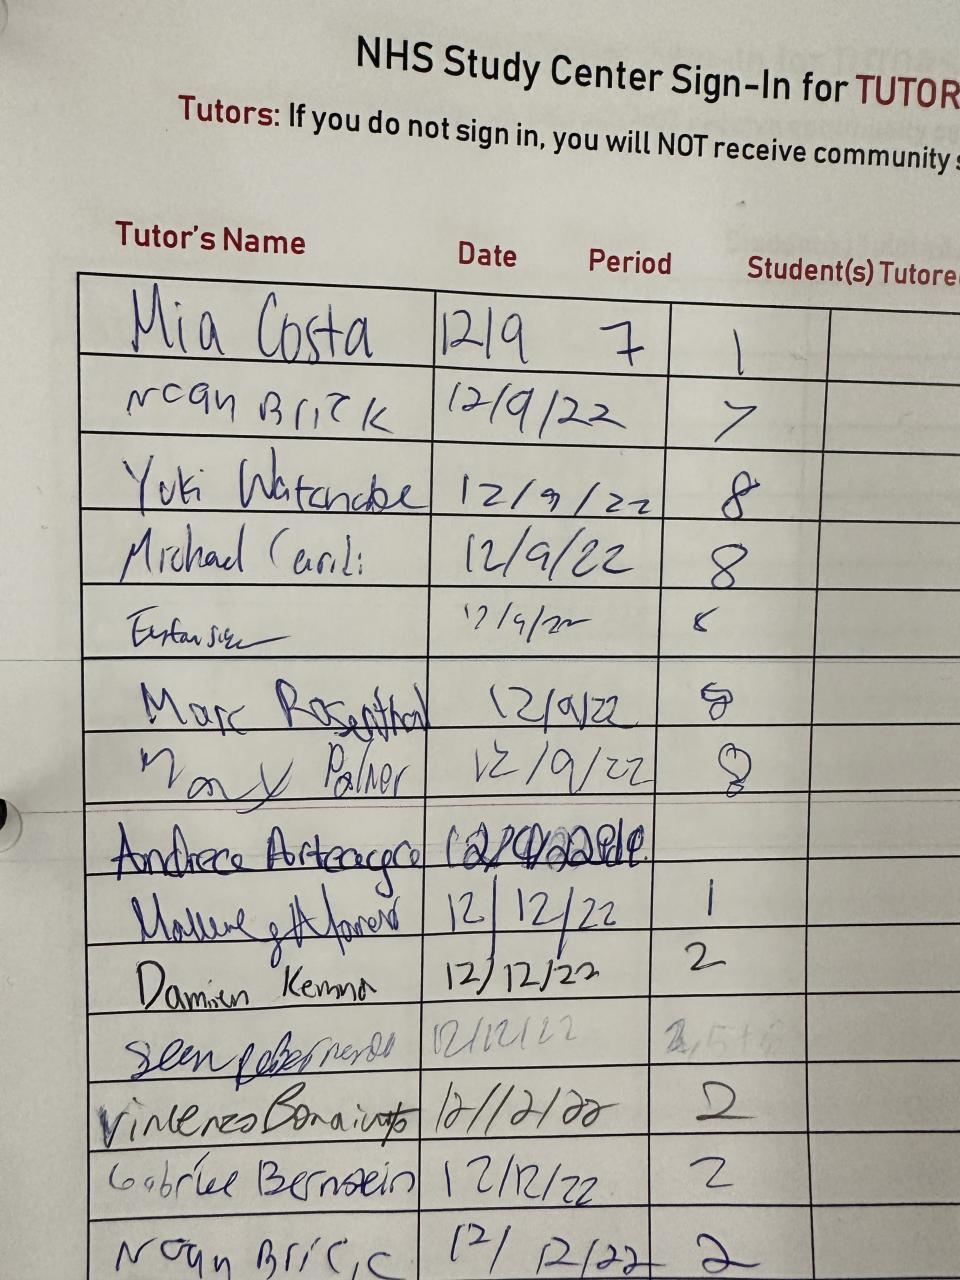 NHS Study Center Sign-In for TUTOR
Tutors: If you do not sign in, you will NOT receive community s
Tutor's Name Date Period Student(s) Tutore
Mia Costa 12/9 7 1
Noah Brick 12/9/22 7
Yuki Watanabe 12/9/22 8
Michael 12/9/22 8
12/9/22
Marc Rosenthal 12/9/22 8
Max Palmer 12/9/22 8
12/12/22 1
Damien Kenna 12/12/22 2
Sean 12/12/22
Vincenzo 12/12/22 2
Gabriel Bernstein 12/12/22 2
Noah Brick 12/12/22 2